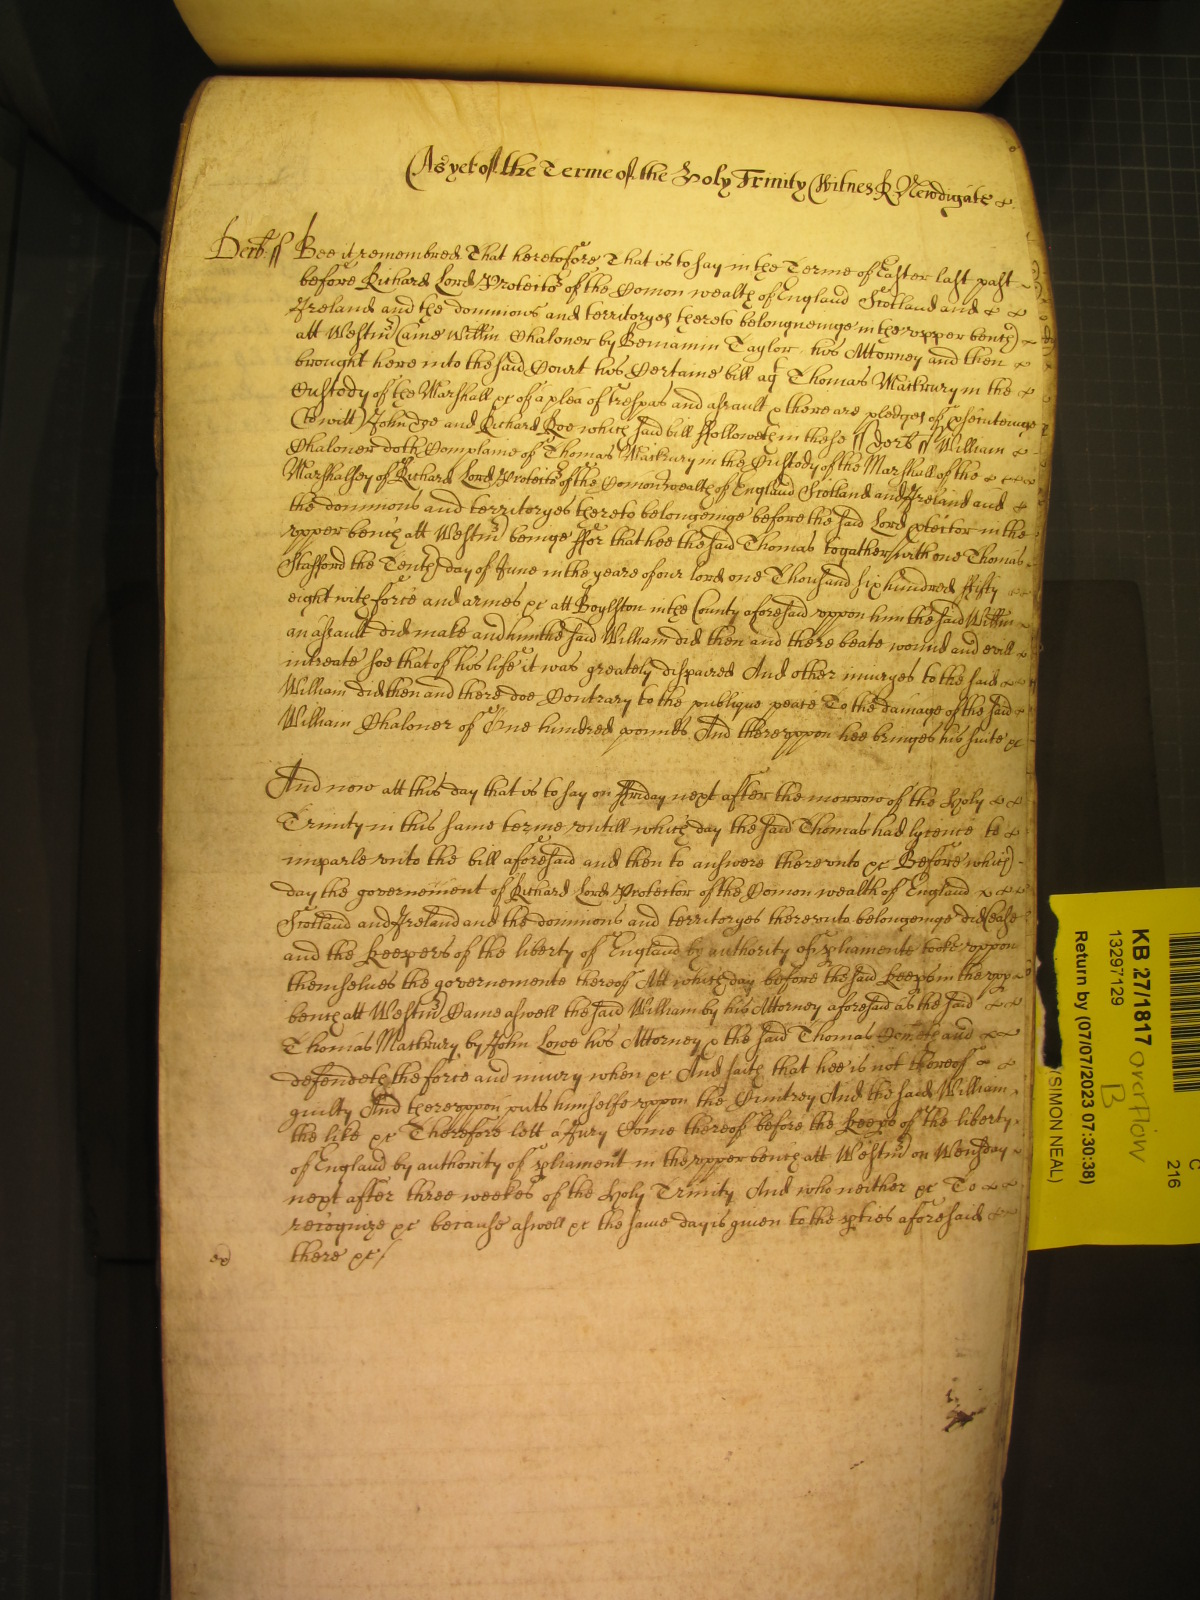 As yet of the Terme of the Holy Trinity Witnes R Newdigate &.
Derb. ss Bee it remembred That heretofore That is to say in the Terme of Easter last past
before Richard Lord Protector of the Comon wealth of England Scotland and
Ireland and the dominions and territoryes thereto belongneinge in the vpper bench
att Westm Came Willm Chaloner by Beniamin Taylor his Attorney and then
brought here into the said Court his Certaine bill agt Thomas Matkury in the
Custody of the Marshall &c of a plea of trespas and assault & there are pledges of psecuteinge
(to witt) John Doe and Richard Roe which said bill ffolloweth in these ss Derb ss William
Chaloner doth Complaine of Thomas Matkury in the Custody of the Marshall of the
Marshalsey of Richard Lord Protector of the Comon wealth of England Scotland and Ireland and
the dominions and territoryes thereto belongeinge before the said Lord ptector in the
vpper bench att Westm beinge ffor that hee the said Thomas togather with one Thomas
Stafford the Tenth day of June in the yeare of our lord one Thousand six hundred ffifty
eight with force and armes &c att Boylston in the County aforesaid vppon him the said Willm
an assault did make and him the said William did then and there beate wound and evill
intreate soe that of his life it was greately dispaired And other iniuryes to the said
William did then and there doe Contrary to the publique peace To the damage of the said
William Chaloner of One hundred pounds And therevppon hee bringes his suite &c
And now att this day that is to say on ffriday next after the morrow of the Holy
Trinity in this same terme vntill which day the said Thomas had lycence to
imparle vnto the bill aforesaid and then to answere therevnto &c Before which
day the governement of Richard Lord Protector of the Comon wealth of England
Scotland and Ireland and the dominions and territoryes therevnto belongeinge did cease
and the Keepers of the liberty of England by authority of pliamente tooke vppon
themselues the governemente thereof Att which day before the said Keeps in the vpp
bench att Westm Came aswell the said William by his Attorney aforesaid as the said
Thomas Matkury by John Lowe his Attorney & the said Thomas Cometh and
defendeth the force and iniury when &c And saith that hee is not thereof
guilty And therevppon puts himselfe vppon the Cuntrey And the said William
the like &c Therefore lett a Jury Come thereof before the Keeps of the liberty
of England by authority of pliament in the vpper bench att Westm on Wensday
next after three weekes of the Holy Trinity And who neither &c To
recognize &c because aswell &c the same day is giuen to the pties aforesaid
there &c /
KB 27/1817 overflow
B
13297129
Return by (07/07/2023 07:30:38)
(SIMON NEAL)
C
216